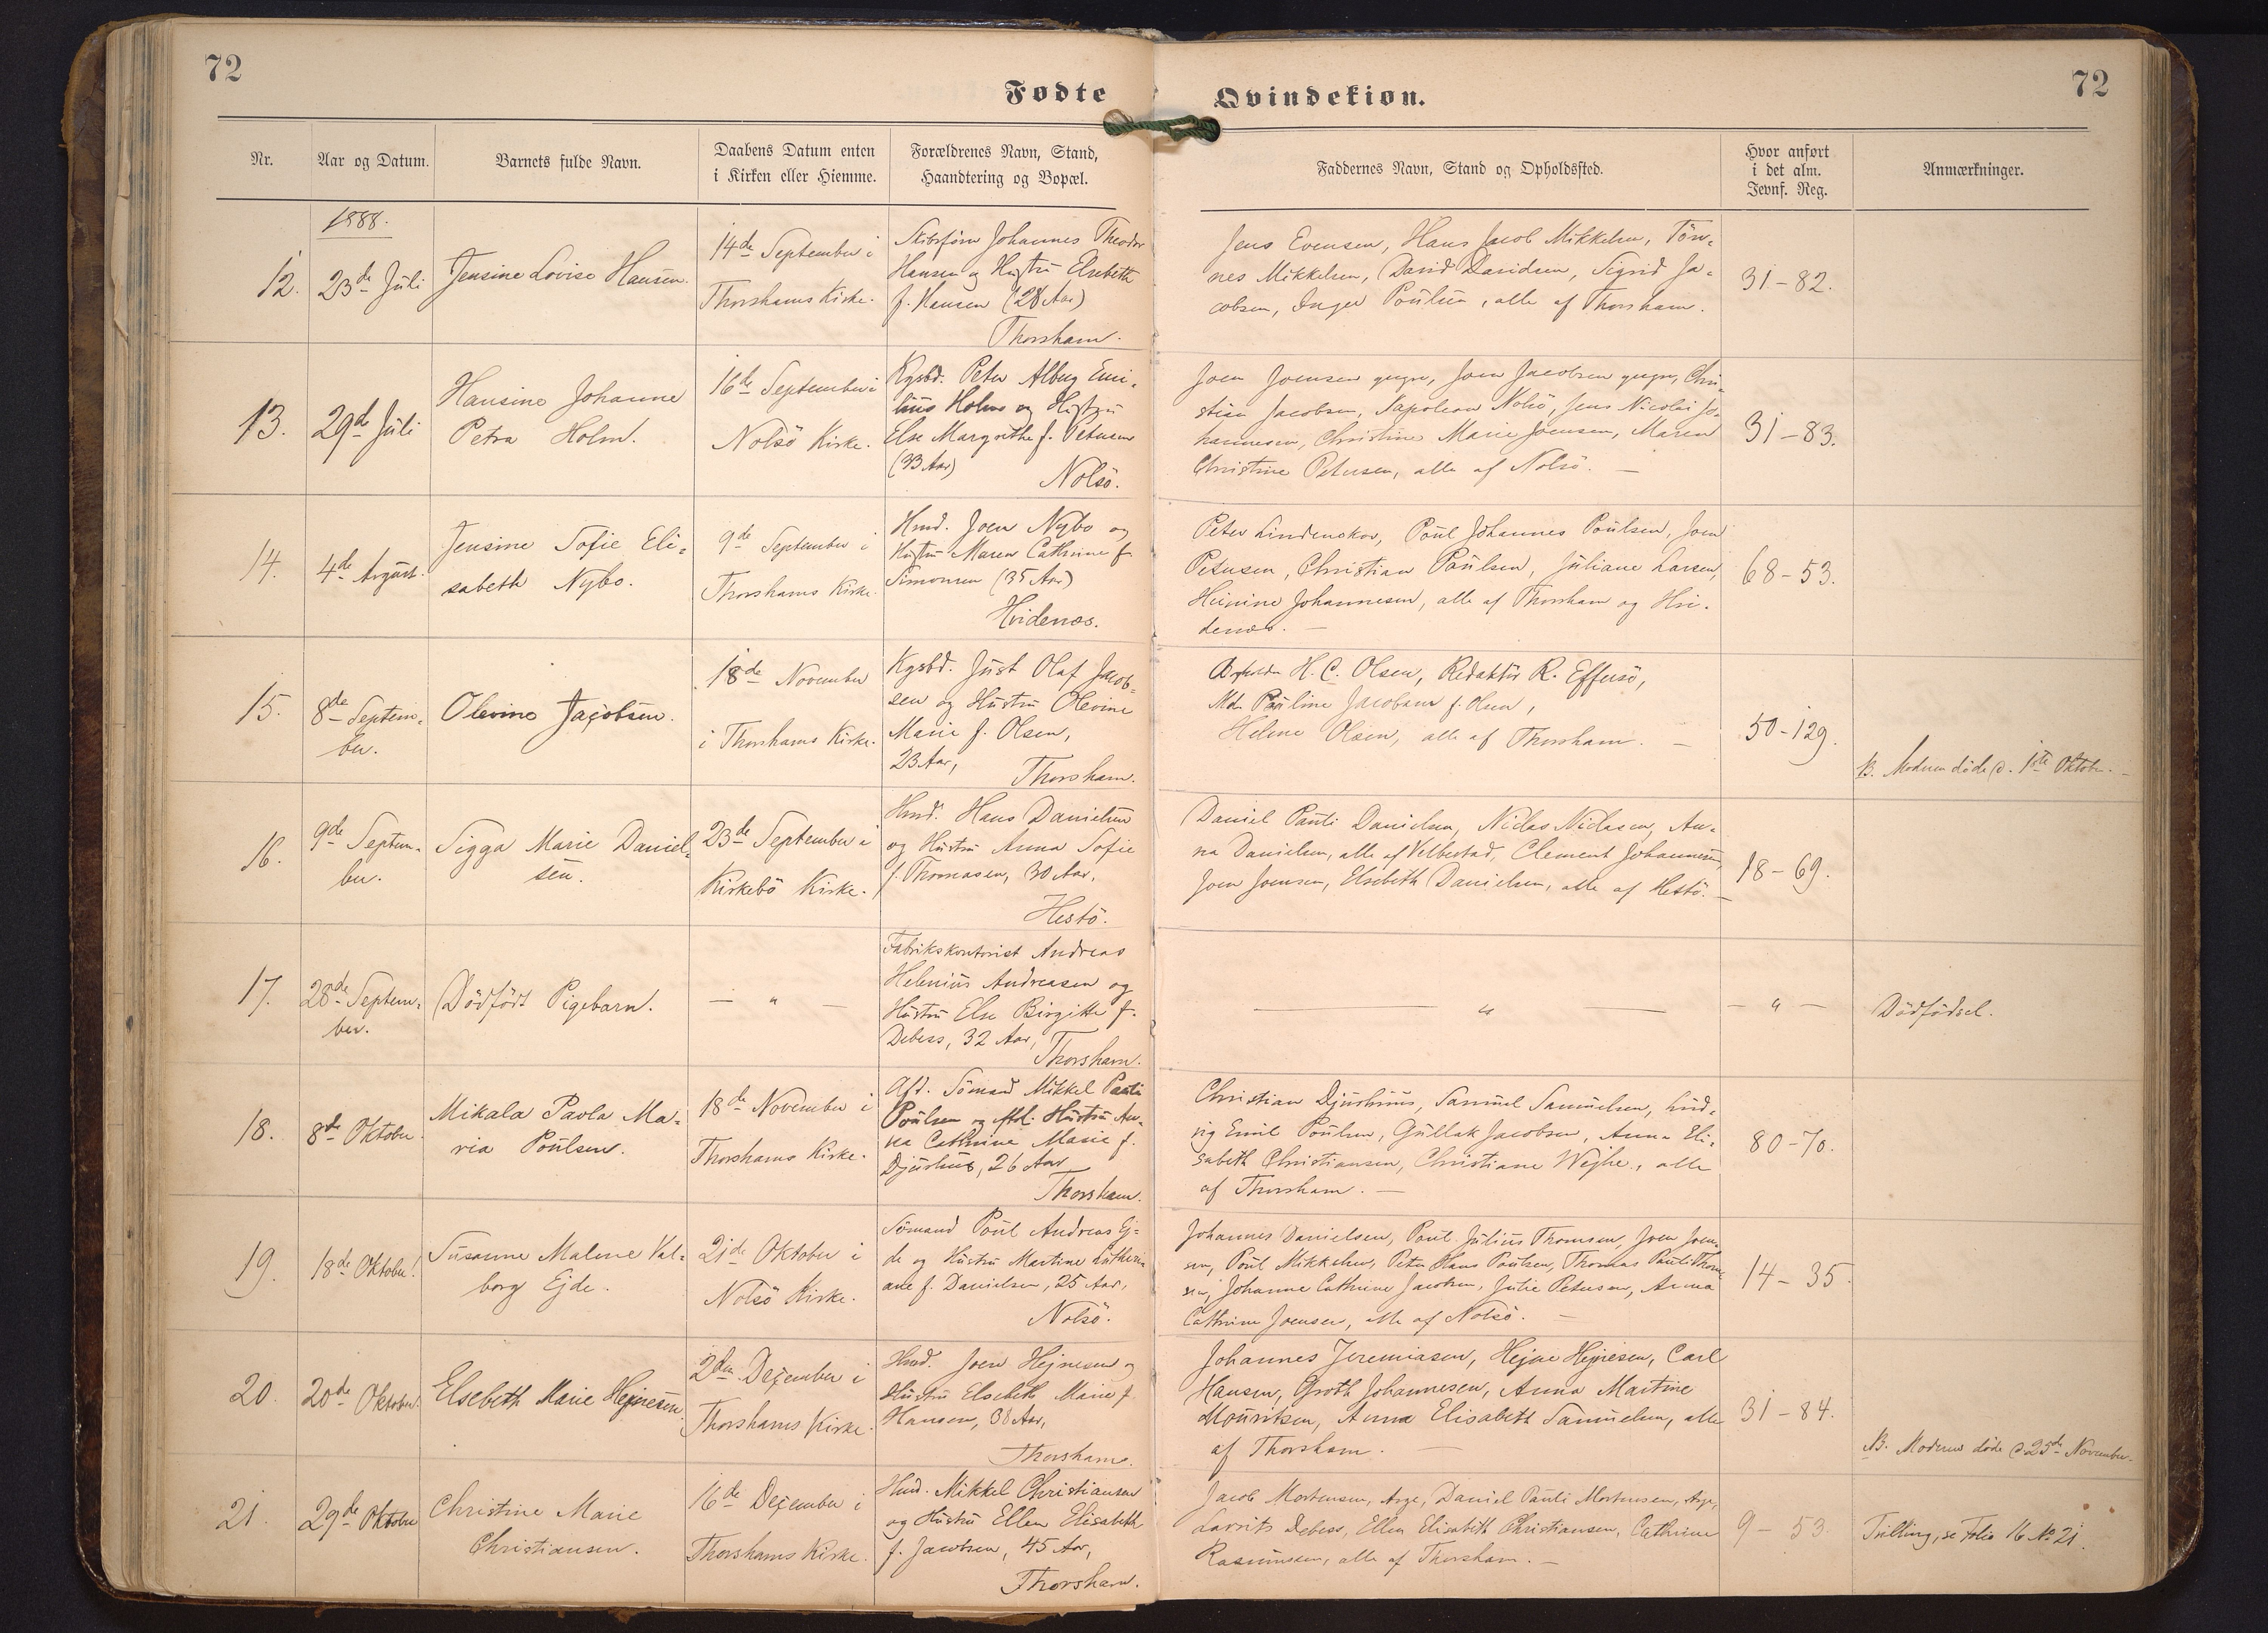 72
Fødte
Qvindekiøn.
72
Nr.
Aar og Datum.
Barnets fulde Navn.
Daabens Datum enten
i Kirken eller Hiemme.
Forældrenes Navn, Stand,
Haandtering og Bopæl.
Faddernes Navn, Stand og Opholdssted.
Hvor anført
i det alm.
Jevnf. Reg.
Anmærkninger.
1888.
12.
23de Juli
Jensine Lovise Hansen.
14de September i
Thorshavns Kirke.
Skibsfører Johannes Theodor
Hansen og Hustru Elsebeth
f. Hansen (28 Aar)
Thorshavn.
Jens Evensen, Hans Jacob Mikkelsen, Tön-
nes Mikkelsen, David Davidsen, Sigrid Ja-
cobsen, Inger Poulsen, alle af Thorshavn.
31-82.
13.
29de Juli
Hansine Johanne
Petra Holm.
16de September i
Nolsö Kirke.
Kgsbd. Peter Alberg Emi-
lius Holm og Hustru
Else Margrethe f. Petersen
(33 Aar)
Nolsö.
Joen Joensen yngre, Joen Jacobsen yngre, Chri-
stian Jacobsen, Napoleon Nolsö, Jens Nicolai Jo-
hannesen, Christine Marie Joensen, Maren
Christine Petersen, alle af Nolsö. —
31-83.
14.
4de August.
Jensine Sofie Eli-
sabeth Nybo.
9de September i
Thorshavns Kirke.
Hmd. Joen Nybo og
Hustru Maren Cathrine f.
Simonsen (35 Aar)
Hvidenæs.
Peter Lindenskov, Poul Johannes Poulsen, Joen
Petersen, Christian Poulsen, Juliane Larsen,
Johannesen, alle af Thorshavn og Hvi-
denæs. —
68-53.
15.
8de Septem-
ber.
Olevine Jacobsen.
18de November
i Thorshavns Kirke.
Kgsbd. Just Olaf Jacob-
sen og Hustru Olevine
Marie f. Olsen,
23 Aar,
Thorshavn.
H. C. Olsen, Redaktör R. Effersö,
Md. Pauline Jacobsen f. Olsen,
Helene Olsen, alle af Thorshavn. —
50-129.
B. Moderen döde d. 1ste Oktober. —
16.
9de Septem-
ber.
Sigga Marie Daniel-
sen.
23de September i
Kirkebö Kirke.
Hmd. Hans Danielsen
og Hustru Anna Sofie
f. Thomasen, 30 Aar,
Hestö.
Daniel Pauli Danielsen, Niclas Niclasen, An-
na Danielsen, alle af Velbestad, Clement Johannesen,
Joen Joensen, Elsebeth Danielsen, alle af Hestö. —
18-69.
17.
28de Septem-
ber.
Dödfödt Pigebarn.
— " —
Fabrikskontorist Andreas
Helenius Andreasen og
Hustru Else Birgitte f.
Debess, 32 Aar,
Thorshavn.
— " —
— " —
Dödfödsel.
18.
8de Oktober
Mikala Paola Ma-
ria Poulsen.
18de November i
Thorshavns Kirke.
Afd. Sömand Mikkel Pauli
Poulsen og eftl. Hustru An-
na Cathrine Marie f.
Djurhuus, 26 Aar
Thorshavn.
Christian Djurhuus, Samuel Samuelsen, Lud-
vig Emil Poulsen, Gullak Jacobsen, Anna Eli-
sabeth Christiansen, Christiane Wejhe, alle
af Thorshavn. —
80-70.
19.
18de Oktober.
Susanne Malene Val-
borg Ejde.
21de Oktober i
Nolsö Kirke.
Sömand Poul Andreas Ej-
de og Hustru Martine Catherin-
ane f. Danielsen, 25 Aar,
Nolsö.
Johannes Danielsen, Poul Julius Thomsen, Joen Joen-
sen, Poul Mikkelsen, Peter Hans Poulsen, Thomas Pauli Thom-
sen, Johanne Cathrine Jacobsen, Julie Petersen, Anna
Cathrine Joensen, alle af Nolsö. —
14-35.
20.
20de Oktober.
Elsebeth Marie Hejnesen.
2den December i
Thorshavns Kirke.
Hmd. Joen Hejnesen og
Hustru Elsebeth Marie f.
Hansen, 38 Aar,
Thorshavn.
Johannes Jeremiasen, Hejne Hejnesen, Carl
Hansen, Groth Johannesen, Anna Martine
Mouritsen, Anna Elisabeth Samuelsen, alle
af Thorshavn. —
31-84.
B. Moderen döde d 25de November.
21.
29de Oktober
Christine Marie
Christiansen.
16de December i
Thorshavns Kirke.
Hmd. Mikkel Christiansen
og Hustru Ellen Elisabeth
f. Jacobsen, 45 Aar,
Thorshavn.
Jacob Mortensen, Arge, Daniel Pauli Mortensen, Arge,
Lavrits Debess, Ellen Elisabeth Christiansen, Cathrine
Rasmussen, alle af Thorshavn. —
9-53.
Tvilling, se Folio 16 No 21.